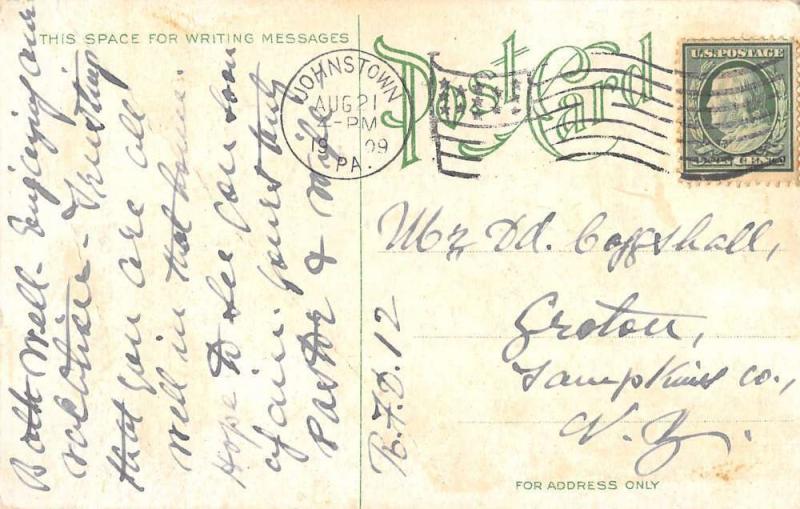 THIS SPACE FOR WRITING MESSAGES
Post Card
JOHNSTOWN
AUG 21
4-PM
1909
PA.
U.S. POSTAGE
Both well - Enjoying our
vacation - Trusting
that you are all
well in that home.
Hope to see Con soon
again. Yours truly
Pastor & Wife
Mr Ed. Coggshall,
Groton,
Tampkins co.,
N. Y.
R.F.D. 12
FOR ADDRESS ONLY